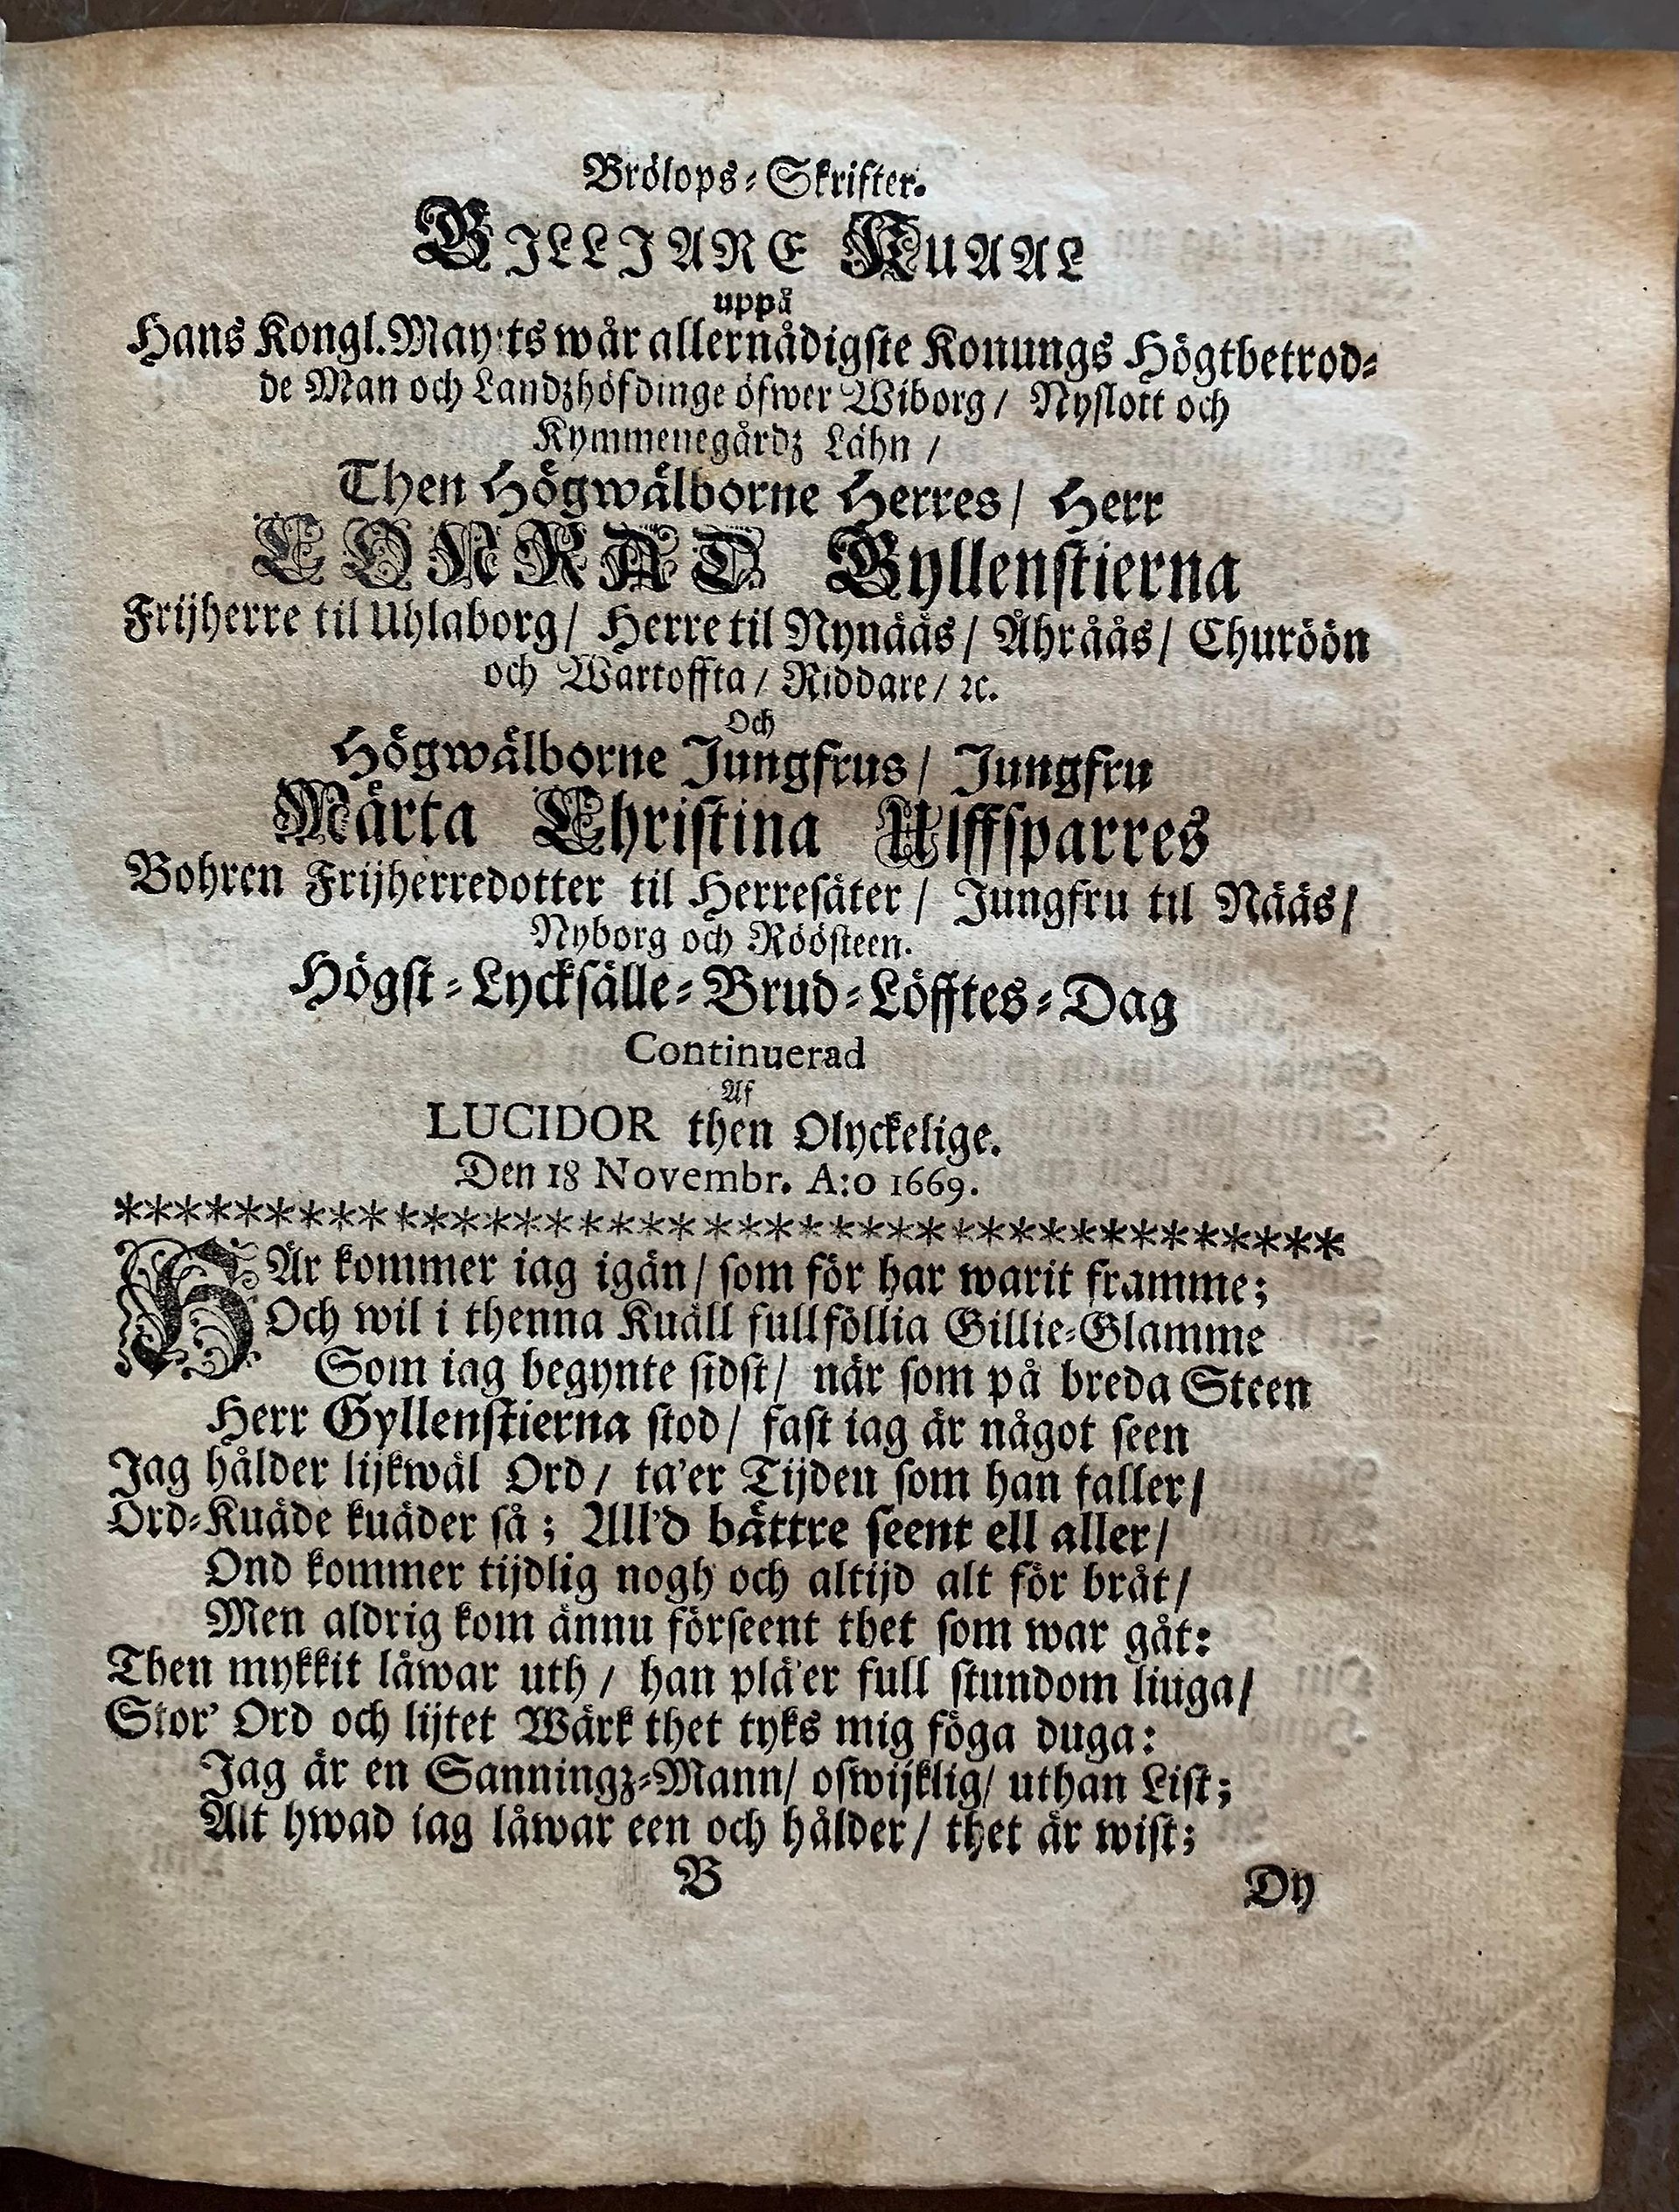 Brölops-Skrifter.
GILLJARE KUAAL
uppå
Hans Kongl. May:ts wår allernådigste Konungs Högtbetrod-
de Man och Landzhöfdinge öfwer Wiborg/ Nyslott och
Kymmenegårdz Lähn /
Then Högwälborne Herres/ Herr
CONRAD Gyllenstierna
Frijherre til Uhlaborg/ Herre til Nynääs/ Åhråås/ Churöön
och Wartoffta/ Riddare/ ꝛc.
Och
Högwälborne Jungfrus/ Jungfru
Märta Christina Ulffsparres
Bohren Frijherredotter til Herresäter/ Jungfru til Nääs/
Nyborg och Röösteen.
Högst-Lycksälle-Brud-Löfftes-Dag
Continuerad
Af
LUCIDOR then Olyckelige.
Den 18 Novembr. A:o 1669.
HÄr kommer iag igän/ som för har warit framme;
Och wil i thenna Kuäll fullföllia Gillie-Glamme
Som iag begynte sidst/ när som på breda Steen
Herr Gyllenstierna stod/ fast iag är något seen
Jag hålder lijkwäl Ord/ ta'er Tijden som han faller/
Ord-Kuäde kuäder så; All'd bättre seent ell aller/
Ond kommer tijdlig nogh och altijd alt för bråt/
Men aldrig kom ännu förseent thet som war gåt:
Then mykkit låwar uth/ han plä'er full stundom liuga/
Stor' Ord och lijtet Wärk thet tyks mig föga duga:
Jag är en Sanningz-Mann/ oswijklig/ uthan List;
Alt hwad iag låwar een och hålder/ thet är wist;
B
Dy